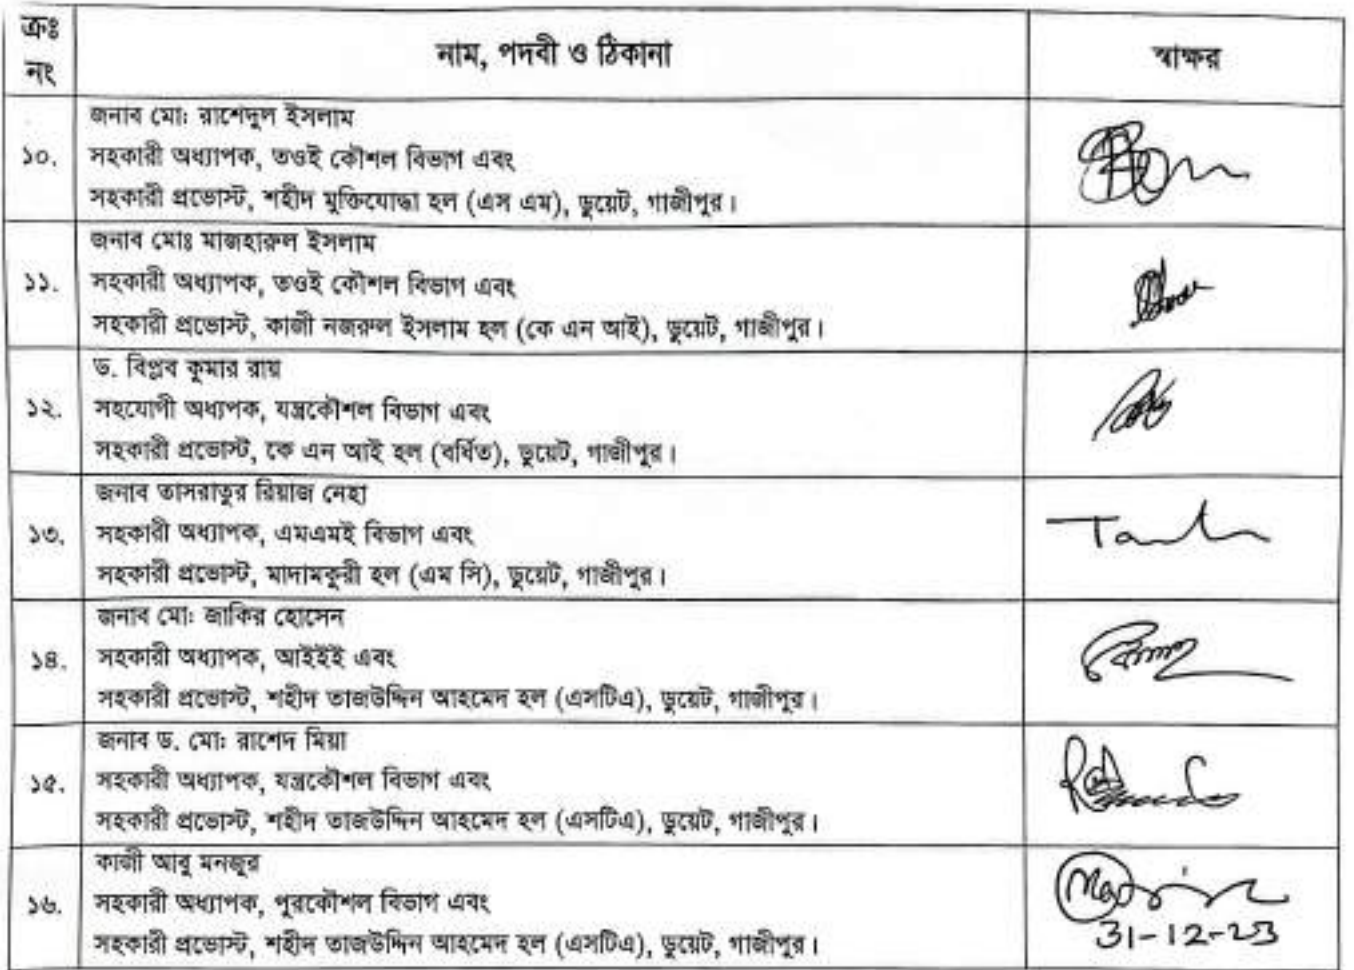 ক্রঃ নং
নাম, পদবী ও ঠিকানা
স্বাক্ষর
জনাব মো: রাশেদুল ইসলাম
১০. সহকারী অধ্যাপক, তওই কৌশল বিভাগ এবং
সহকারী প্রভোস্ট, শহীদ মুক্তিযোদ্ধা হল (এস এম), ডুয়েট, গাজীপুর।
জনাব মোঃ মাজহারুল ইসলাম
১১. সহকারী অধ্যাপক, তওই কৌশল বিভাগ এবং
সহকারী প্রভোস্ট, কাজী নজরুল ইসলাম হল (কে এন আই), ডুয়েট, গাজীপুর।
ড. বিপ্লব কুমার রায়
১২. সহযোগী অধ্যপক, যন্ত্রকৌশল বিভাগ এবং
সহকারী প্রভোস্ট, কে এন আই হল (বর্ধিত), ডুয়েট, গাজীপুর।
জনাব তাসরাতুর রিয়াজ নেহা
১৩. সহকারী অধ্যাপক, এমএমই বিভাগ এবং
সহকারী প্রভোস্ট, মাদামকুরী হল (এম সি), ডুয়েট, গাজীপুর।
জনাব মো: জাকির হোসেন
১৪. সহকারী অধ্যাপক, আইইই এবং
সহকারী প্রভোস্ট, শহীদ তাজউদ্দিন আহমেদ হল (এসটিএ), ডুয়েট, গাজীপুর।
জনাব ড. মো: রাশেদ মিয়া
১৫. সহকারী অধ্যাপক, যন্ত্রকৌশল বিভাগ এবং
সহকারী প্রভোস্ট, শহীদ তাজউদ্দিন আহমেদ হল (এসটিএ), ডুয়েট, গাজীপুর।
কাজী আবু মনজুর
১৬. সহকারী অধ্যাপক, পুরকৌশল বিভাগ এবং
31-12-23
সহকারী প্রভোস্ট, শহীদ তাজউদ্দিন আহমেদ হল (এসটিএ), ডুয়েট, গাজীপুর।